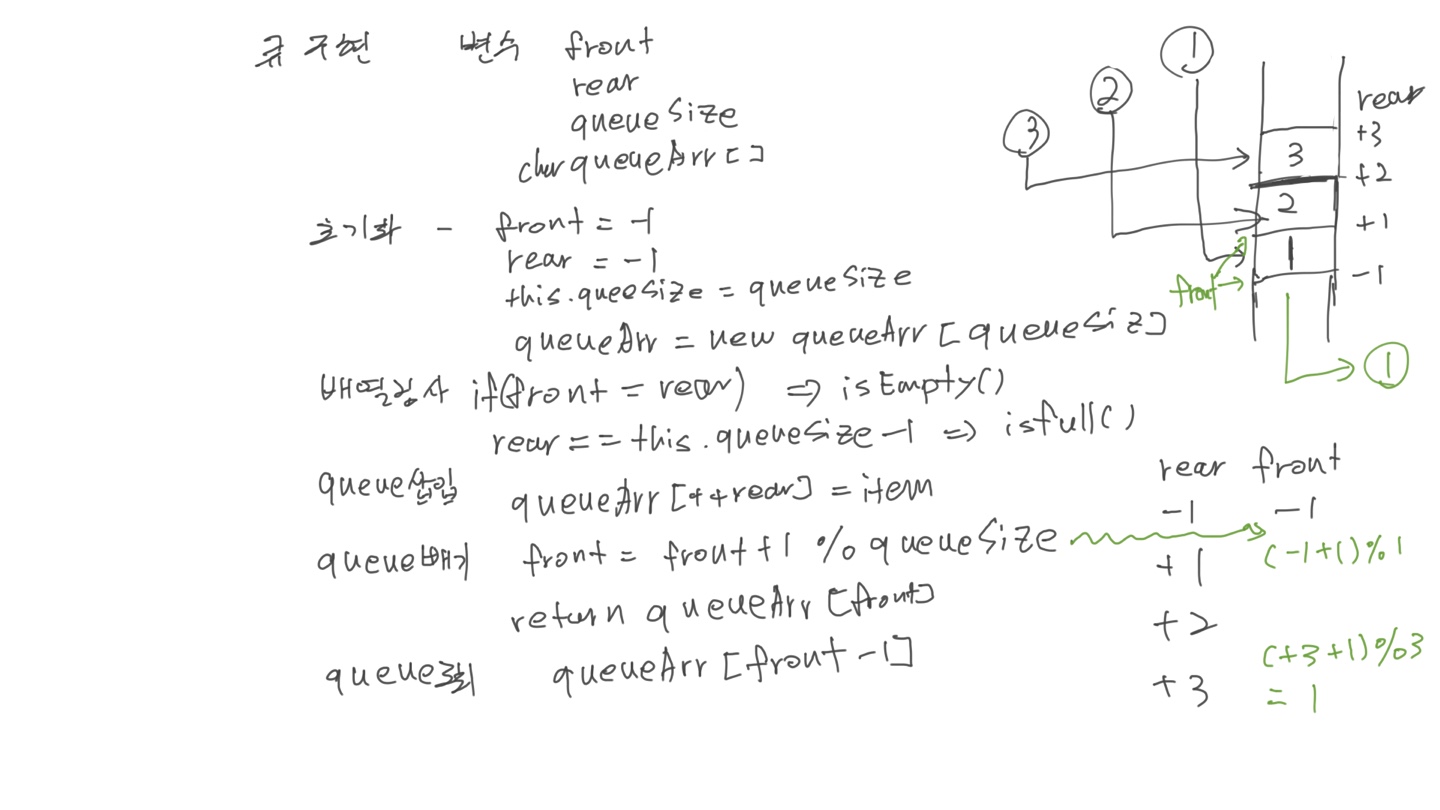 큐 구현 변수 front
rear
queueSize
char queueArr[]
초기화 - front = -1
rear = -1
this.queeSize = queueSize
queueArr = new queueArr [queueSiz]
배열검사 if(front = rear) => isEmpty()
rear == this.queueSize-1 => isfull()
queue삽입 queueArr[++rear] = item
queue빼기 front = front+1 % queueSize
return queueArr[front]
queue조회 queueArr[front-1]
①
②
③
rear
+3
3
+2
2
+1
1
-1
front
①
rear front
-1 -1
+1 (-1+1)%1
+2
+3 (+3+1)%3
= 1